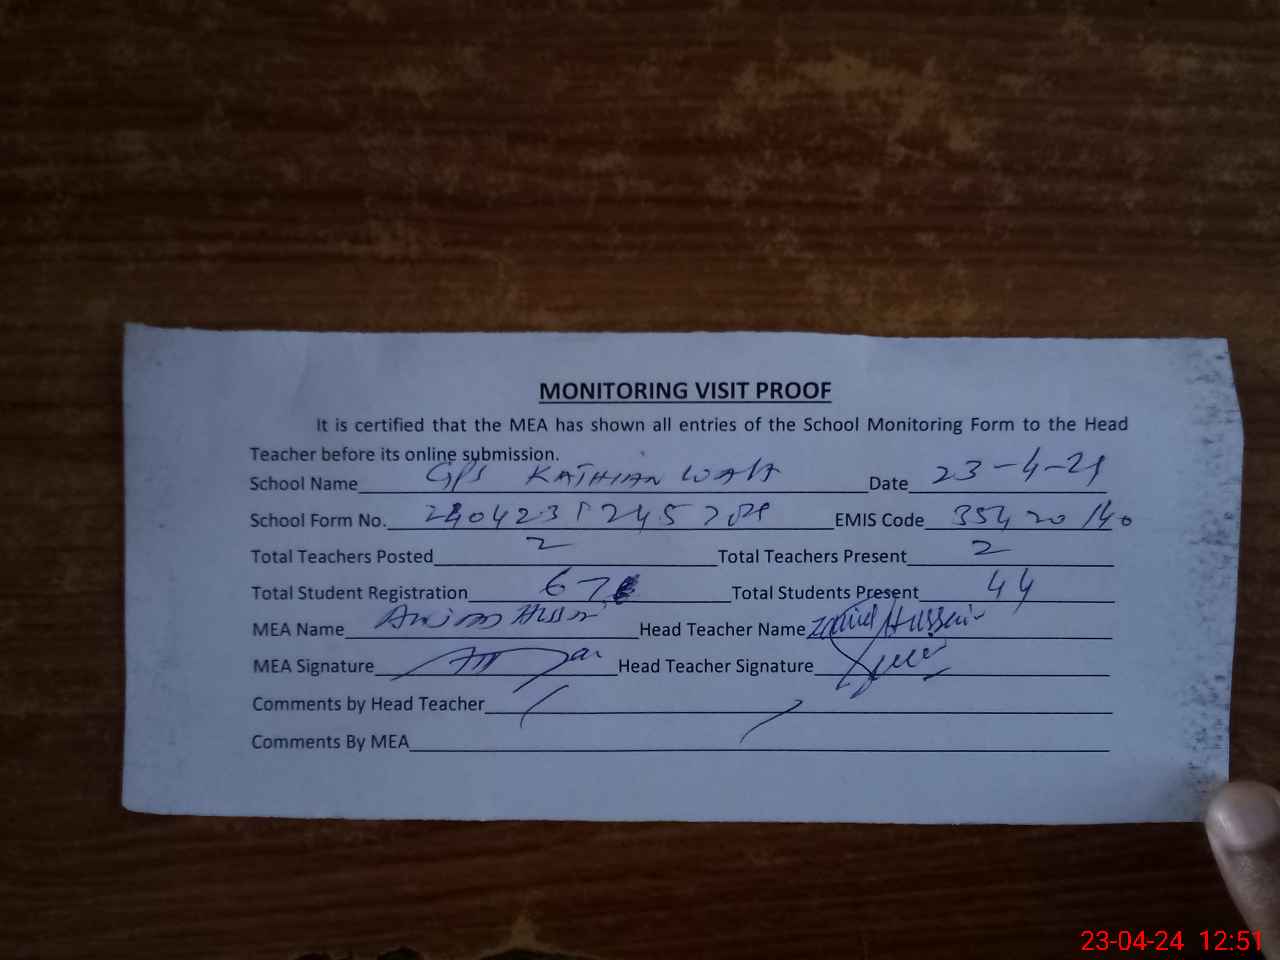 MONITORING VISIT PROOF
It is certified that the MEA has shown all entries of the School Monitoring Form to the Head
Teacher before its online submission.
School Name GPS KATHIAN WALA Date 23-4-24
School Form No. EMIS Code 35420140
Total Teachers Posted 2 Total Teachers Present 2
Total Student Registration 67 Total Students Present 44
MEA Name Head Teacher Name Hussain
MEA Signature Head Teacher Signature
Comments by Head Teacher
Comments By MEA
23-04-24 12:51